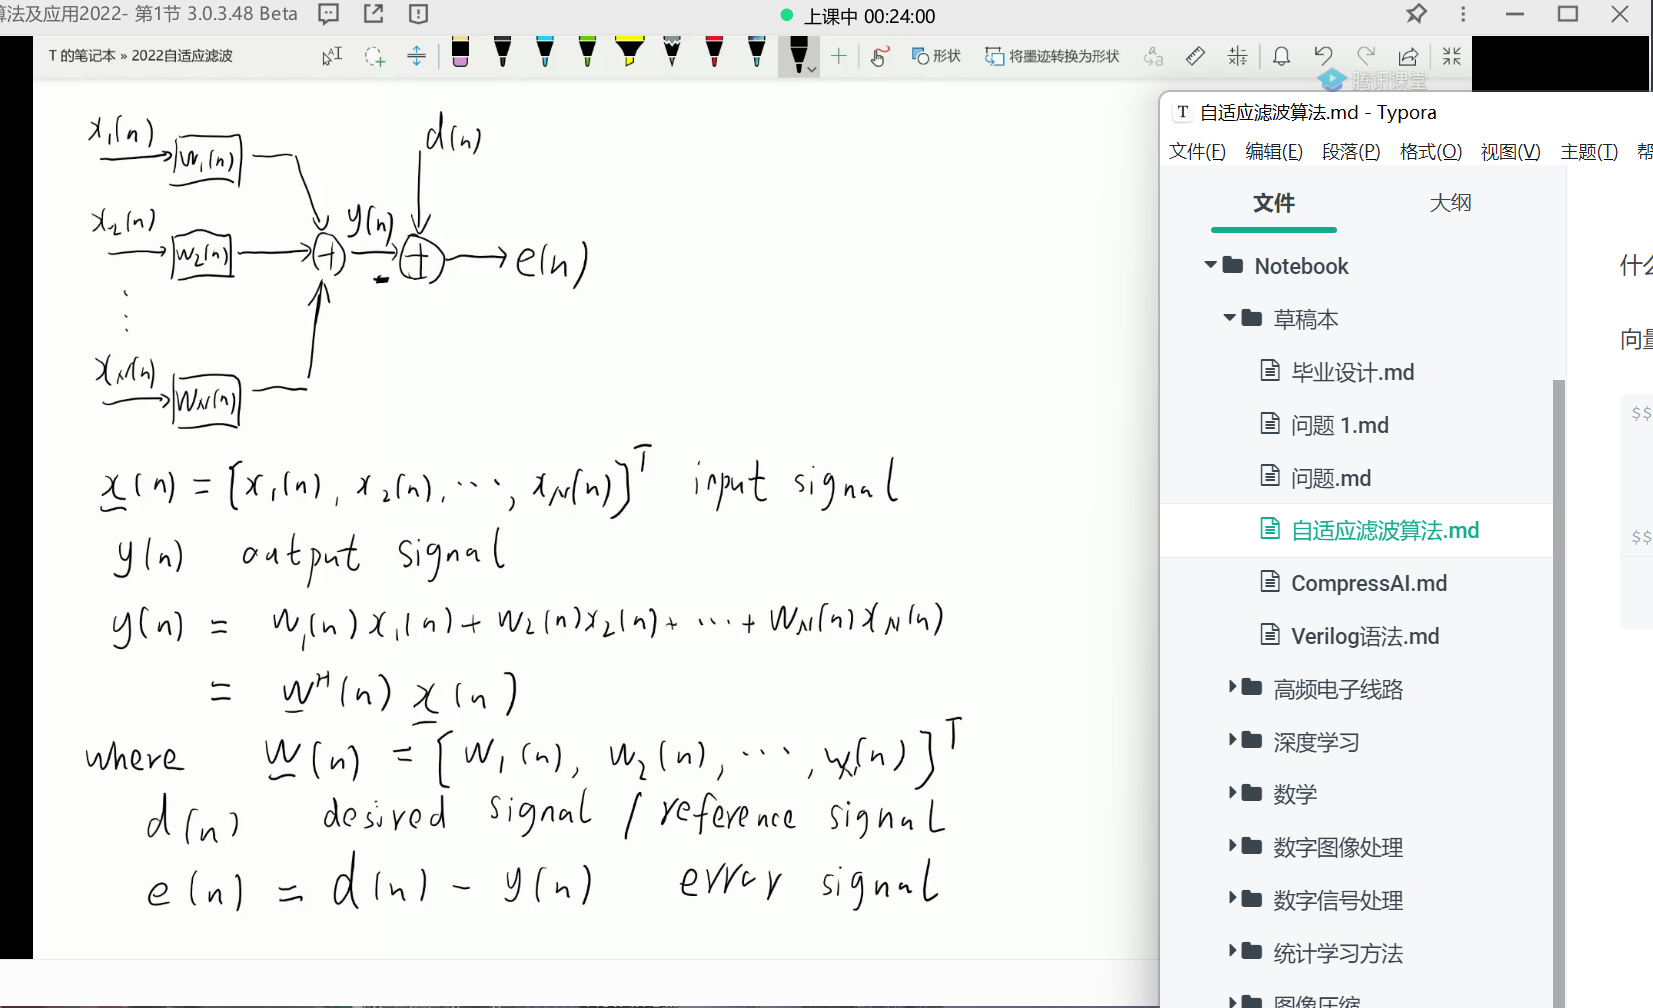 算法及应用2022- 第1节 3.0.3.48 Beta
上课中 00:24:00
T 的笔记本 » 2022自适应滤波
形状
将墨迹转换为形状
腾讯课堂
x₁(n)
w₁(n)
d(n)
x₂(n)
w₂(n)
+
y(n)
-
+
e(n)
⋮
x_N(n)
w_N(n)
x(n) = [x₁(n), x₂(n), ⋯, x_N(n)]ᵀ input signal
y(n) output signal
y(n) = w₁(n)x₁(n) + w₂(n)x₂(n) + ⋯ + w_N(n)x_N(n)
= wᴴ(n) x(n)
where w(n) = [w₁(n), w₂(n), ⋯, w_N(n)]ᵀ
d(n) desired signal / reference signal
e(n) = d(n) - y(n) error signal
T 自适应滤波算法.md - Typora
文件(F) 编辑(E) 段落(P) 格式(O) 视图(V) 主题(T) 帮
文件 大纲
Notebook
草稿本
毕业设计.md
问题 1.md
问题.md
自适应滤波算法.md
CompressAI.md
Verilog语法.md
高频电子线路
深度学习
数学
数字图像处理
数字信号处理
统计学习方法
图像压缩
什么
向量
$$
$$